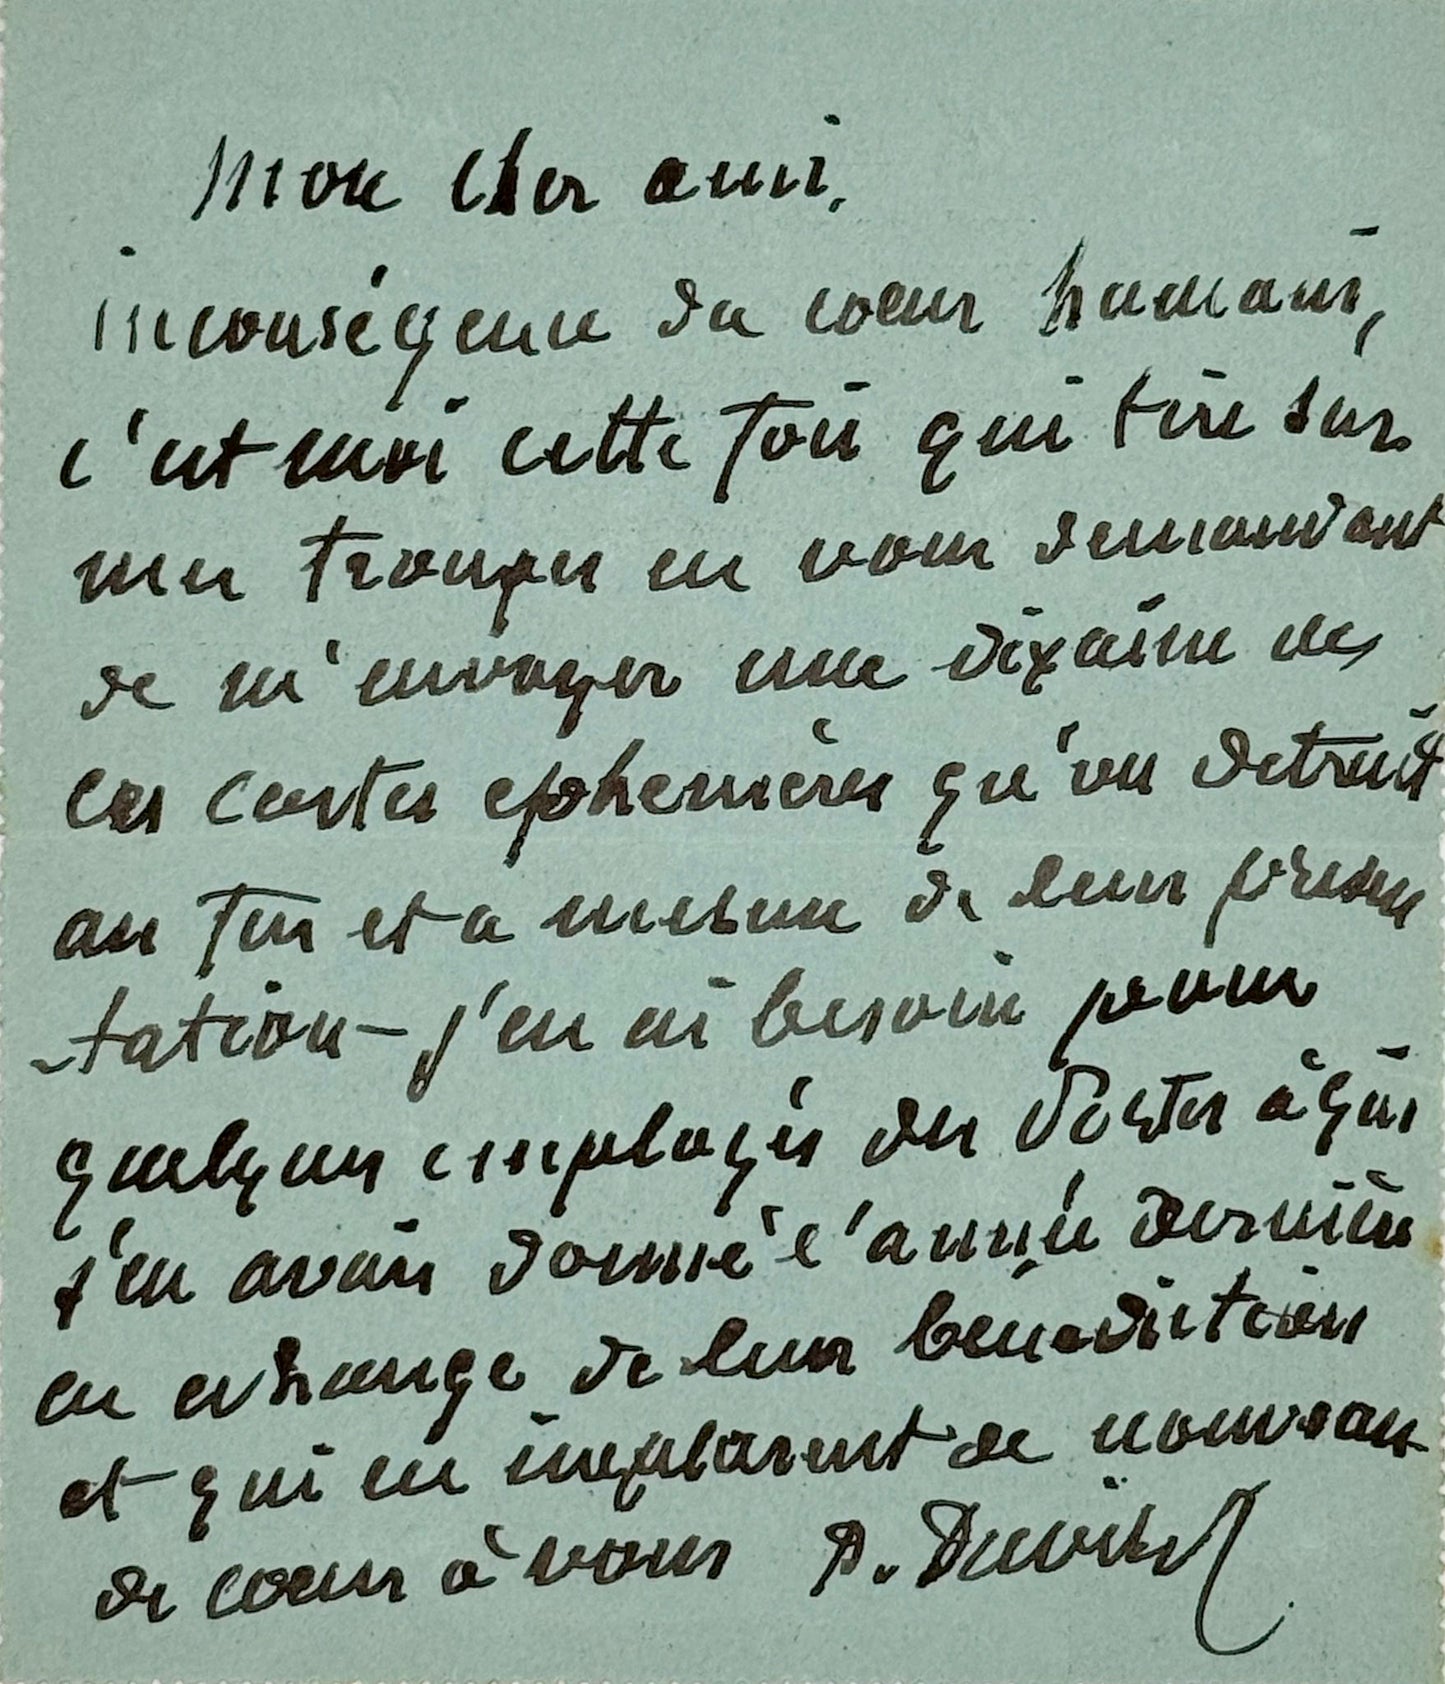 Mon cher ami,
inconséqence du coeur humain,
c'est moi cette fois qui tire sur
mes troupes en vous demandant
de m'envoyer une dixaine de
ces cartes ephemères qu'on detruit
au fur et a mesure de leur présen
tation – j'en ai besoin pour
quelques employés des Postes à qui
j'en avais donné l'année dernière
en echange de leur bénédiction
et qui en implorent de nouveau
de coeur à vous